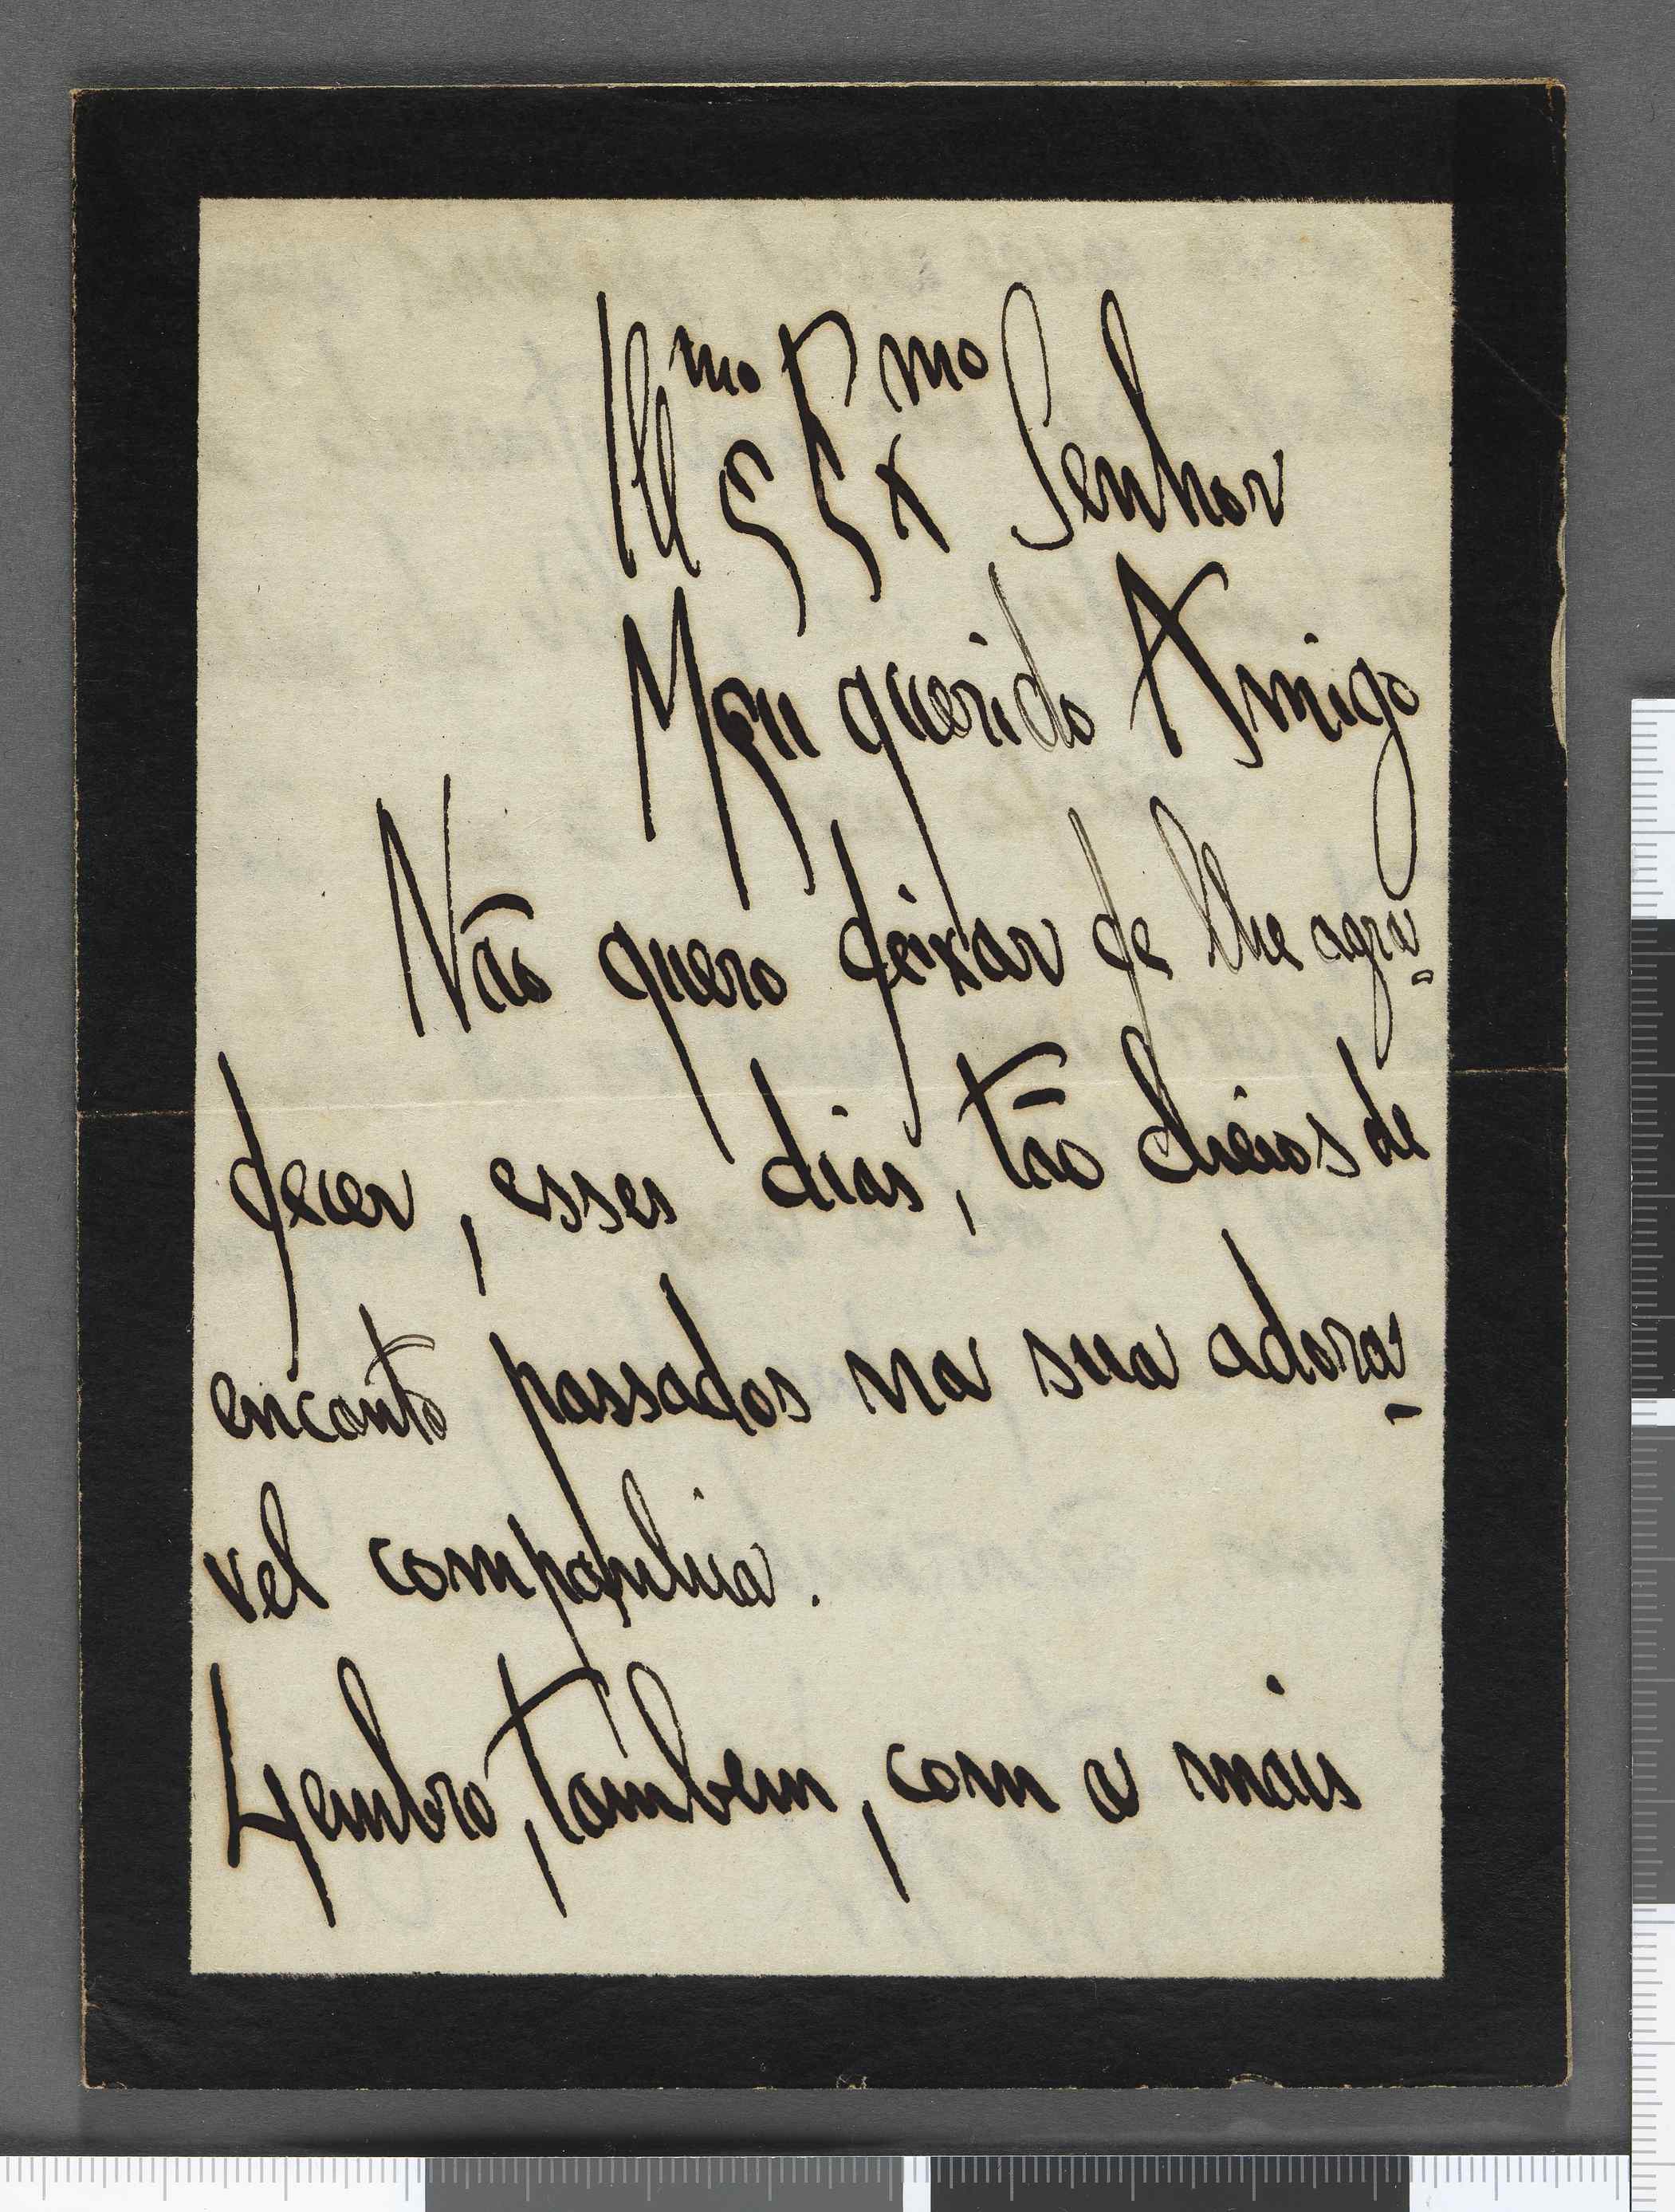 Illmo e Exmo Senhor
Meu querido Amigo
Não quero deixar de lhe agra-
decer, esses dias, tão cheios de
encanto passados na sua adora-
vel companhia.
Lembro, tambem, com a mais